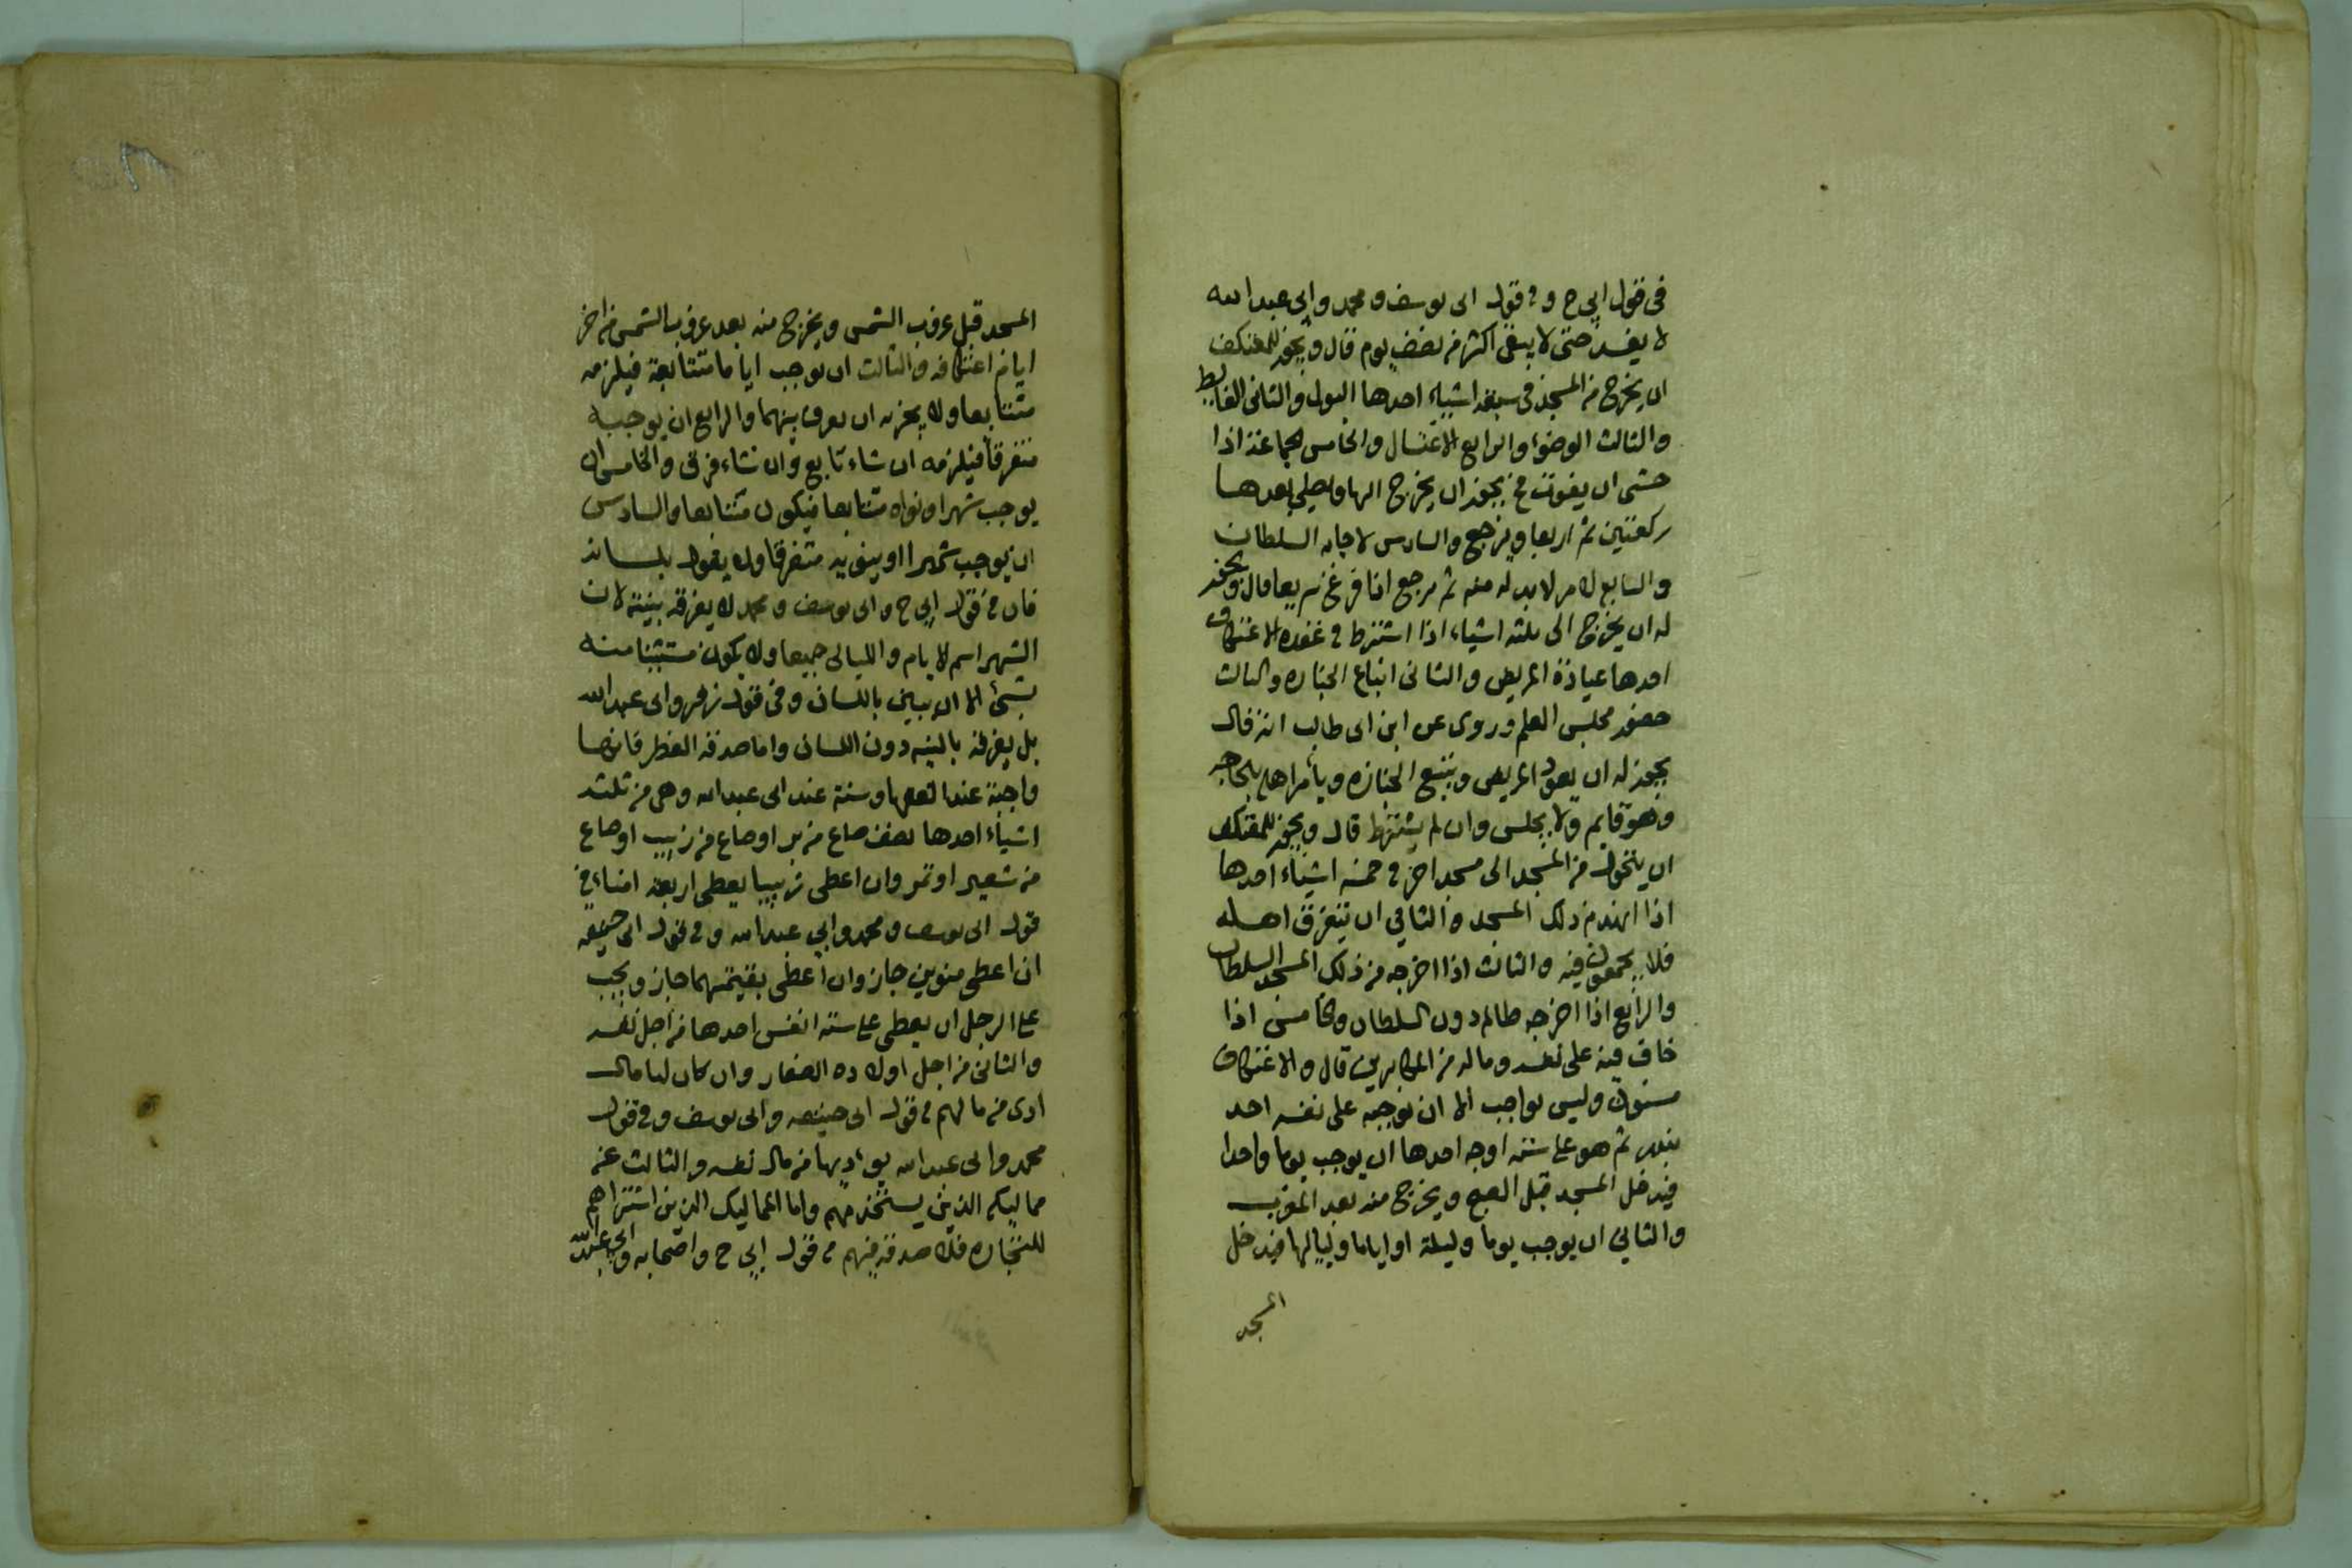 في قول ابي ح وفي قول ابي يوسف ومحمد وابي عبد الله
لا يفسد حتى لا يبقى اكثر من نصف يوم قال ويجوز للمعتكف
ان يخرج من المسجد في سبعة اشياء احدها البول والثاني الغايط
والثالث الوضوء والرابع الاغتسال والخامس الجماعة اذا
خشى ان يفوت يجوز ان يخرج اليها ويصلي بعدها
ركعتين ثم اربعا ويرجع والسادس لاجابة السلطان
والسابع لامر لابد له منه ثم يرجع اذا فرغ سريعا قال ويجوز
له ان يخرج الى ثلثة اشياء اذا اشترط في عقده الاعتكاف
احدها عيادة المريض والثاني اتباع الجنازه والثالث
حضور مجلس العلم وروى عن ابن ابي طالب انه قال
يجوز له ان يعود المريض ويتبع الجنازه ويأمر اهله بالحاجه
وهو قايم ولا يجلس وان لم يشترط قال ويجوز للمعتكف
ان يتحول من المسجد الى مسجد اخر في خمسة اشياء احدها
اذا انهدم ذلك المسجد والثاني ان يتفرق اهله
فلا يجمعون فيه والثالث اذا اخرجه من ذلك المسجد السلطان
والرابع اذا اخرجه ظالم دون السلطان والخامس اذا
خاف فيه على نفسه وماله من المكابرين قال والاعتكاف
مسنون وليس بواجب الا ان يوجبه على نفسه احد
بنذر ثم هو على ستة اوجه احدها ان يوجب يوما واحدا
فيدخل المسجد قبل الصبح ويخرج منه بعد المغرب
والثاني ان يوجب يوما وليلة او اياما ولياليها فيدخل
المسجد
المسجد قبل غروب الشمس ويخرج منه بعد غروب الشمس من اخر
ايام اعتكافه والثالث ان يوجب اياما متتابعة فيلزمه
متتابعا ولا يجزيه ان يفرق بينهما والرابع ان يوجبه
متفرقا فيلزمه ان شاء تابع وان شاء فرق والخامس ان
يوجب شهرا ونواه متتابعا فيكون متتابعا والسادس
ان يوجب شهرا او ينويه متفرقا ولا يقول بلسانه
فان في قول ابي ح وابي يوسف ومحمد لا يفرقه بنيته لان
الشهر اسم الايام والليالي جميعا ولا يكون مستثنيا منه
بشئ الا ان يبين باللسان وفي قول زفر وابي عبد الله
بل يفرقه بالنيه دون اللسان واما صدقة الفطر فانها
واجبة عند الفقها وسنة عند ابي عبد الله وهي من ثلثة
اشياء احدها نصف صاع من بر او صاع من زبيب او صاع
من شعير او تمر وان اعطى زبيبا يعطى اربعة امناء في
قول ابي يوسف ومحمد وابي عبد الله وفي قول ابي حنيفه
ان اعطى منوين جاز وان اعطى بقيمتهما جاز ويجب
على الرجل ان يعطى على ستة انفس احدها من اجل نفسه
والثاني من اجل اولاده الصغار وان كان لها مال
ادى من مالهم في قول ابي حنيفه وابي يوسف وفي قول
محمد وابي عبد الله يؤديها من مال نفسه والثالث عن
مماليكه الذين يستخدمهم واما المماليك الذين اشتراهم
للتجاره فلا صدقة فيهم في قول ابي ح واصحابه وابي عبد الله